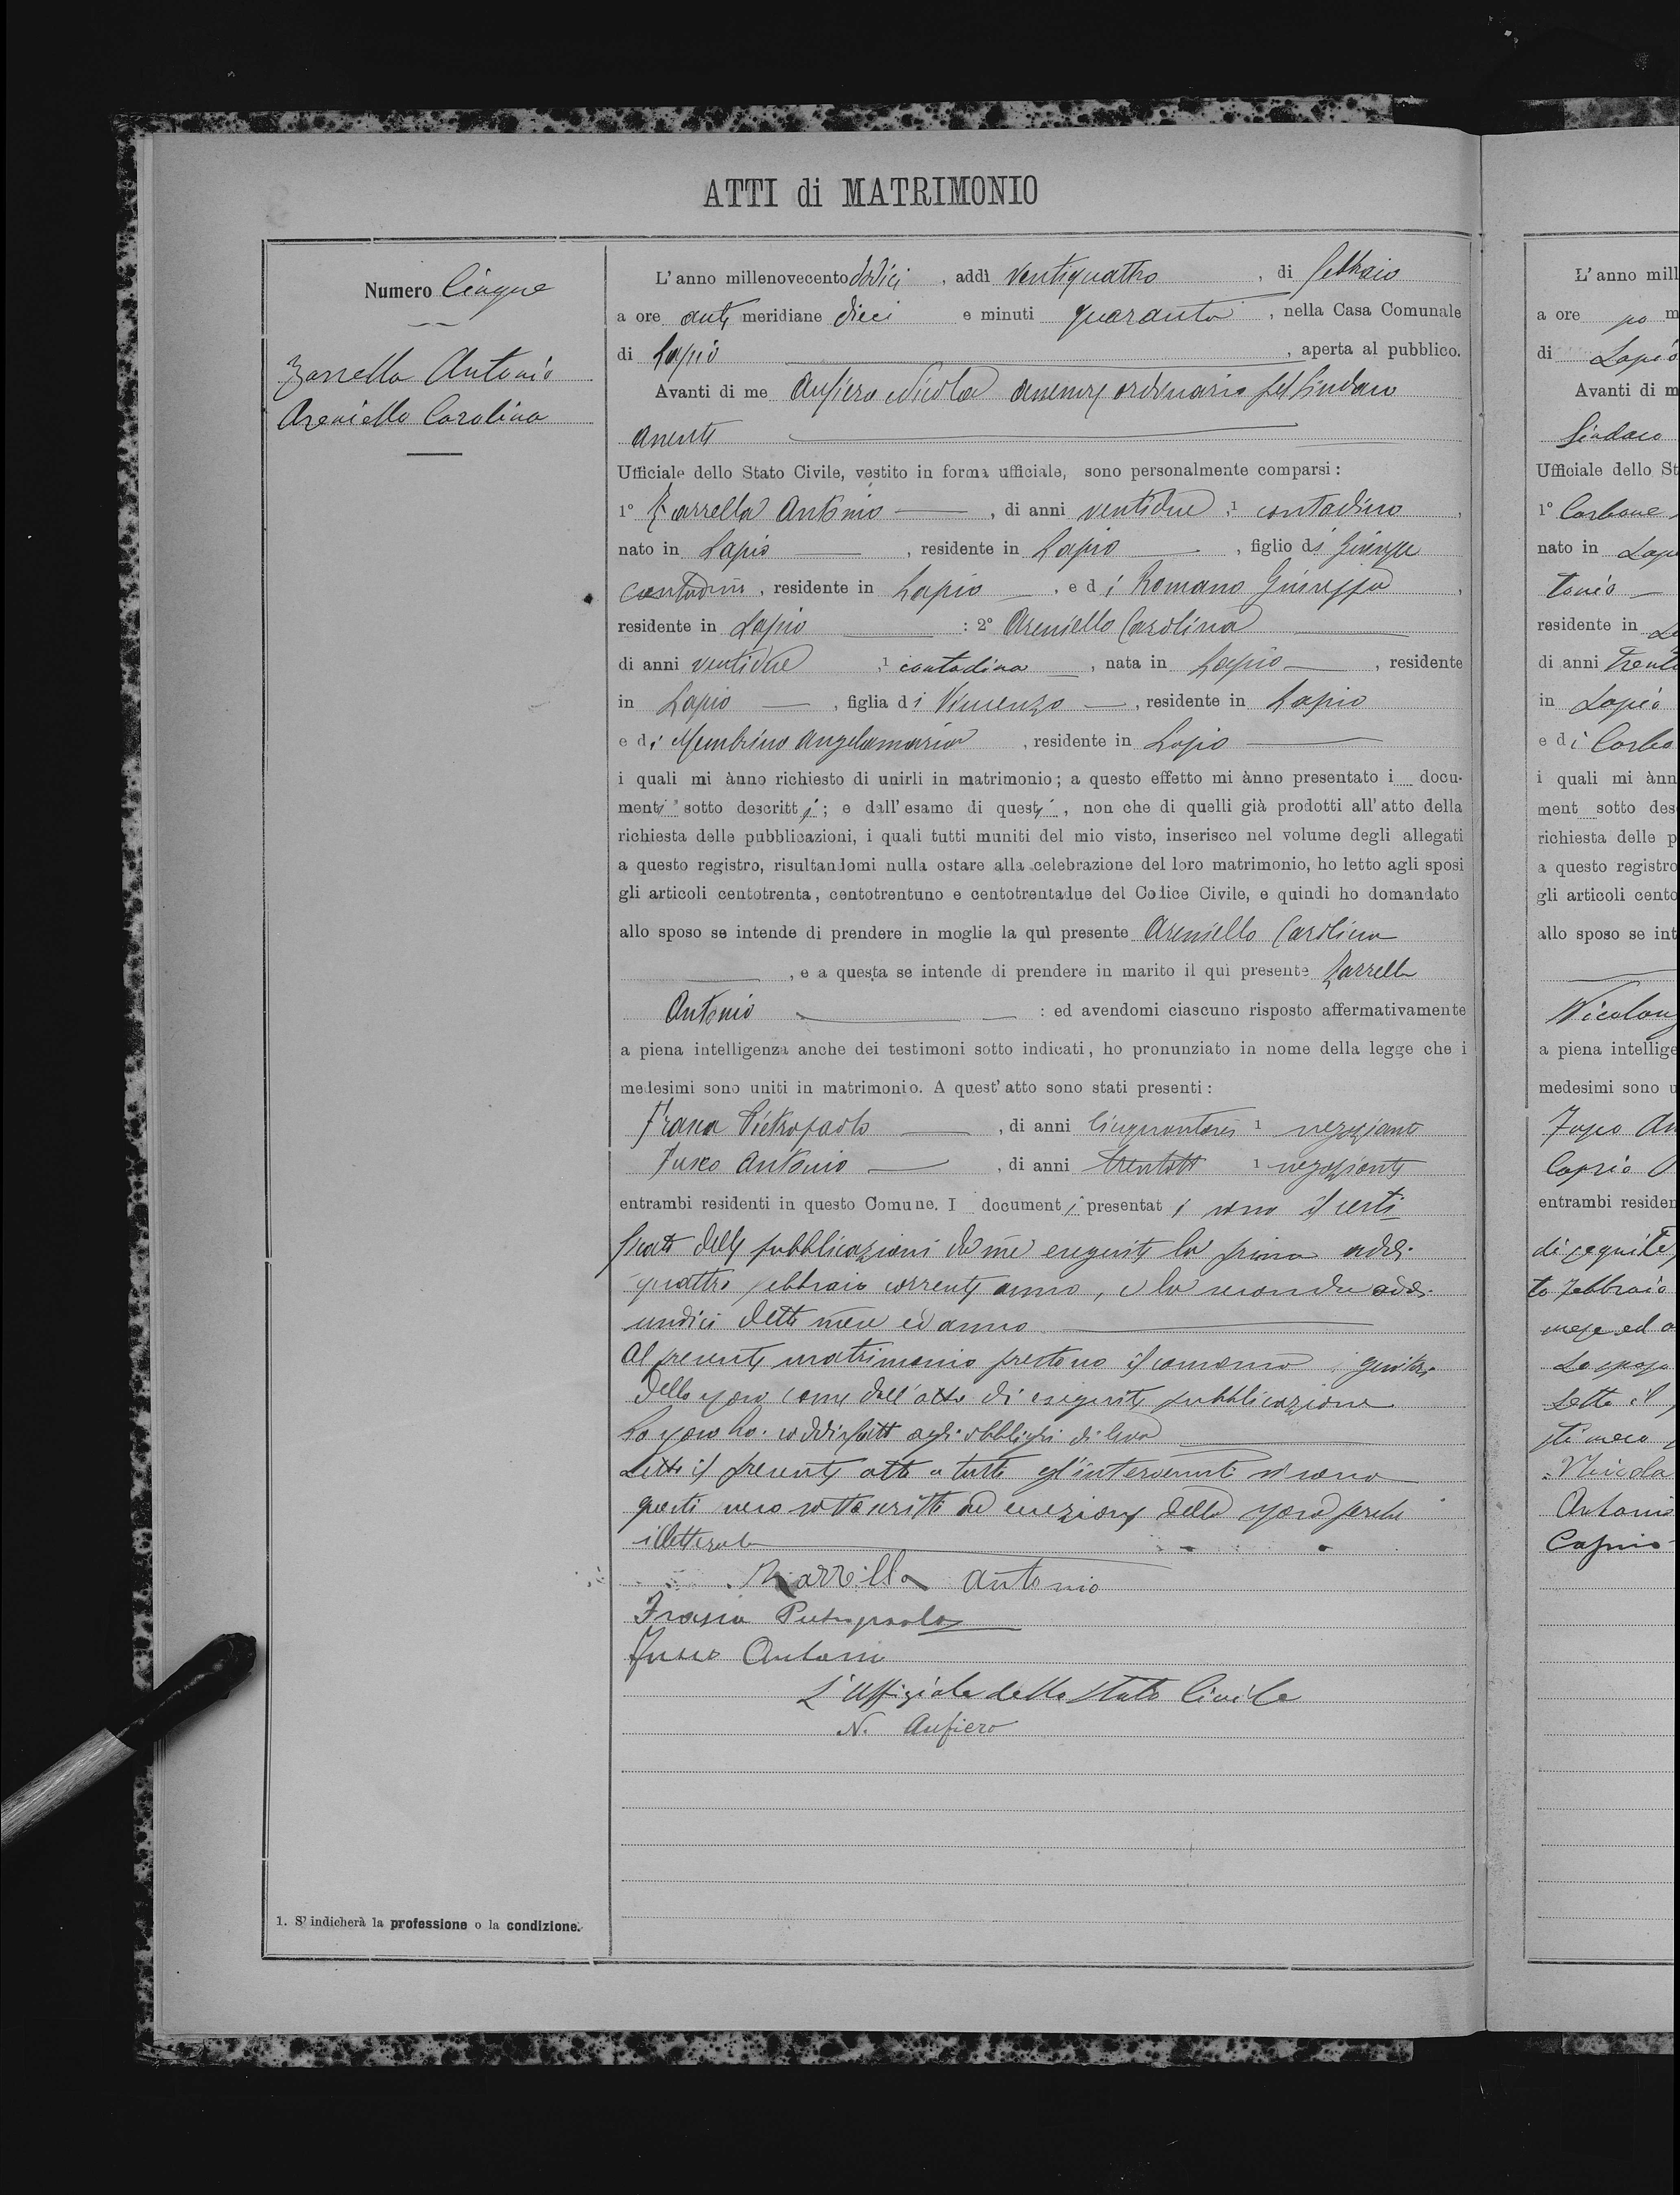 ATTI di MATRIMONIO
Numero Cinque
Zarrella Antonio
Areniello Carolina
1. S' indicherà la professione o la condizione.
L' anno millenovecento dodici, addì ventiquattro, di febbraio
a ore anti meridiane dieci e minuti quaranta, nella Casa Comunale
di Lapio, aperta al pubblico.
Avanti di me Aufiero Nicola assessore ordinario pel Sindaco
assente
Ufficiale dello Stato Civile, vestito in forma ufficiale, sono personalmente comparsi:
1° Zarrella Antonio, di anni ventidue, 1 contadino,
nato in Lapio, residente in Lapio, figlio di Giuseppe
contadino, residente in Lapio, e di Romano Giuseppa,
residente in Lapio: 2° Areniello Carolina
di anni ventidue, 1 contadina, nata in Lapio, residente
in Lapio, figlia di Vincenzo, residente in Lapio
e di Membrino Angelamaria, residente in Lapio
i quali mi ànno richiesto di unirli in matrimonio; a questo effetto mi ànno presentato i docu-
menti sotto descritti; e dall' esame di questi, non che di quelli già prodotti all' atto della
richiesta delle pubblicazioni, i quali tutti muniti del mio visto, inserisco nel volume degli allegati
a questo registro, risultandomi nulla ostare alla celebrazione del loro matrimonio, ho letto agli sposi
gli articoli centotrenta, centotrentuno e centotrentadue del Codice Civile, e quindi ho domandato
allo sposo se intende di prendere in moglie la quì presente Areniello Carolina
, e a questa se intende di prendere in marito il qui presente Zarrella
Antonio: ed avendomi ciascuno risposto affermativamente
a piena intelligenza anche dei testimoni sotto indicati, ho pronunziato in nome della legge che i
medesimi sono uniti in matrimonio. A quest' atto sono stati presenti:
Pietropaolo, di anni cinquantatre 1 negoziante
Fusco Antonio, di anni trentotto 1 negoziante
entrambi residenti in questo Comune. I documenti presentati sono il certi
ficato delle pubblicazioni da me eseguite la prima addì
quattro febbraio corrente anno, e la seconda addì
undici detto mese ed anno
Al presente matrimonio prestano il consenso i genitori
dello sposo come dall'atto di eseguite pubblicazione
Lo sposo ha soddisfatto agli obblighi di leva
Letto il presente atto a tutti gl'intervenuti si sono
questi meco sottoscritti ad eccezione della sposa perchè
illetterata
Zarrella Antonio
Pietropaolo
Fusco Antonio
L'Uffiziale dello Stato Civile
N. Aufiero
L' anno mill
a ore po m
di Lapio
Avanti di m
Sindaco
Ufficiale dello St
1° Carbone
nato in Lapi
tonio
residente in La
di anni Trent
in Lapio
e di Carbo
i quali mi ànn
ment sotto des
richiesta delle p
a questo registro
gli articoli cento
allo sposo se int
Nicolang
a piena intellige
medesimi sono u
Fusco An
Caprio
entrambi residen
di seguite
to febbraio
mese ed a
Lo sposo
Letto il
sti meco
Nicola
Antonio
Caprio